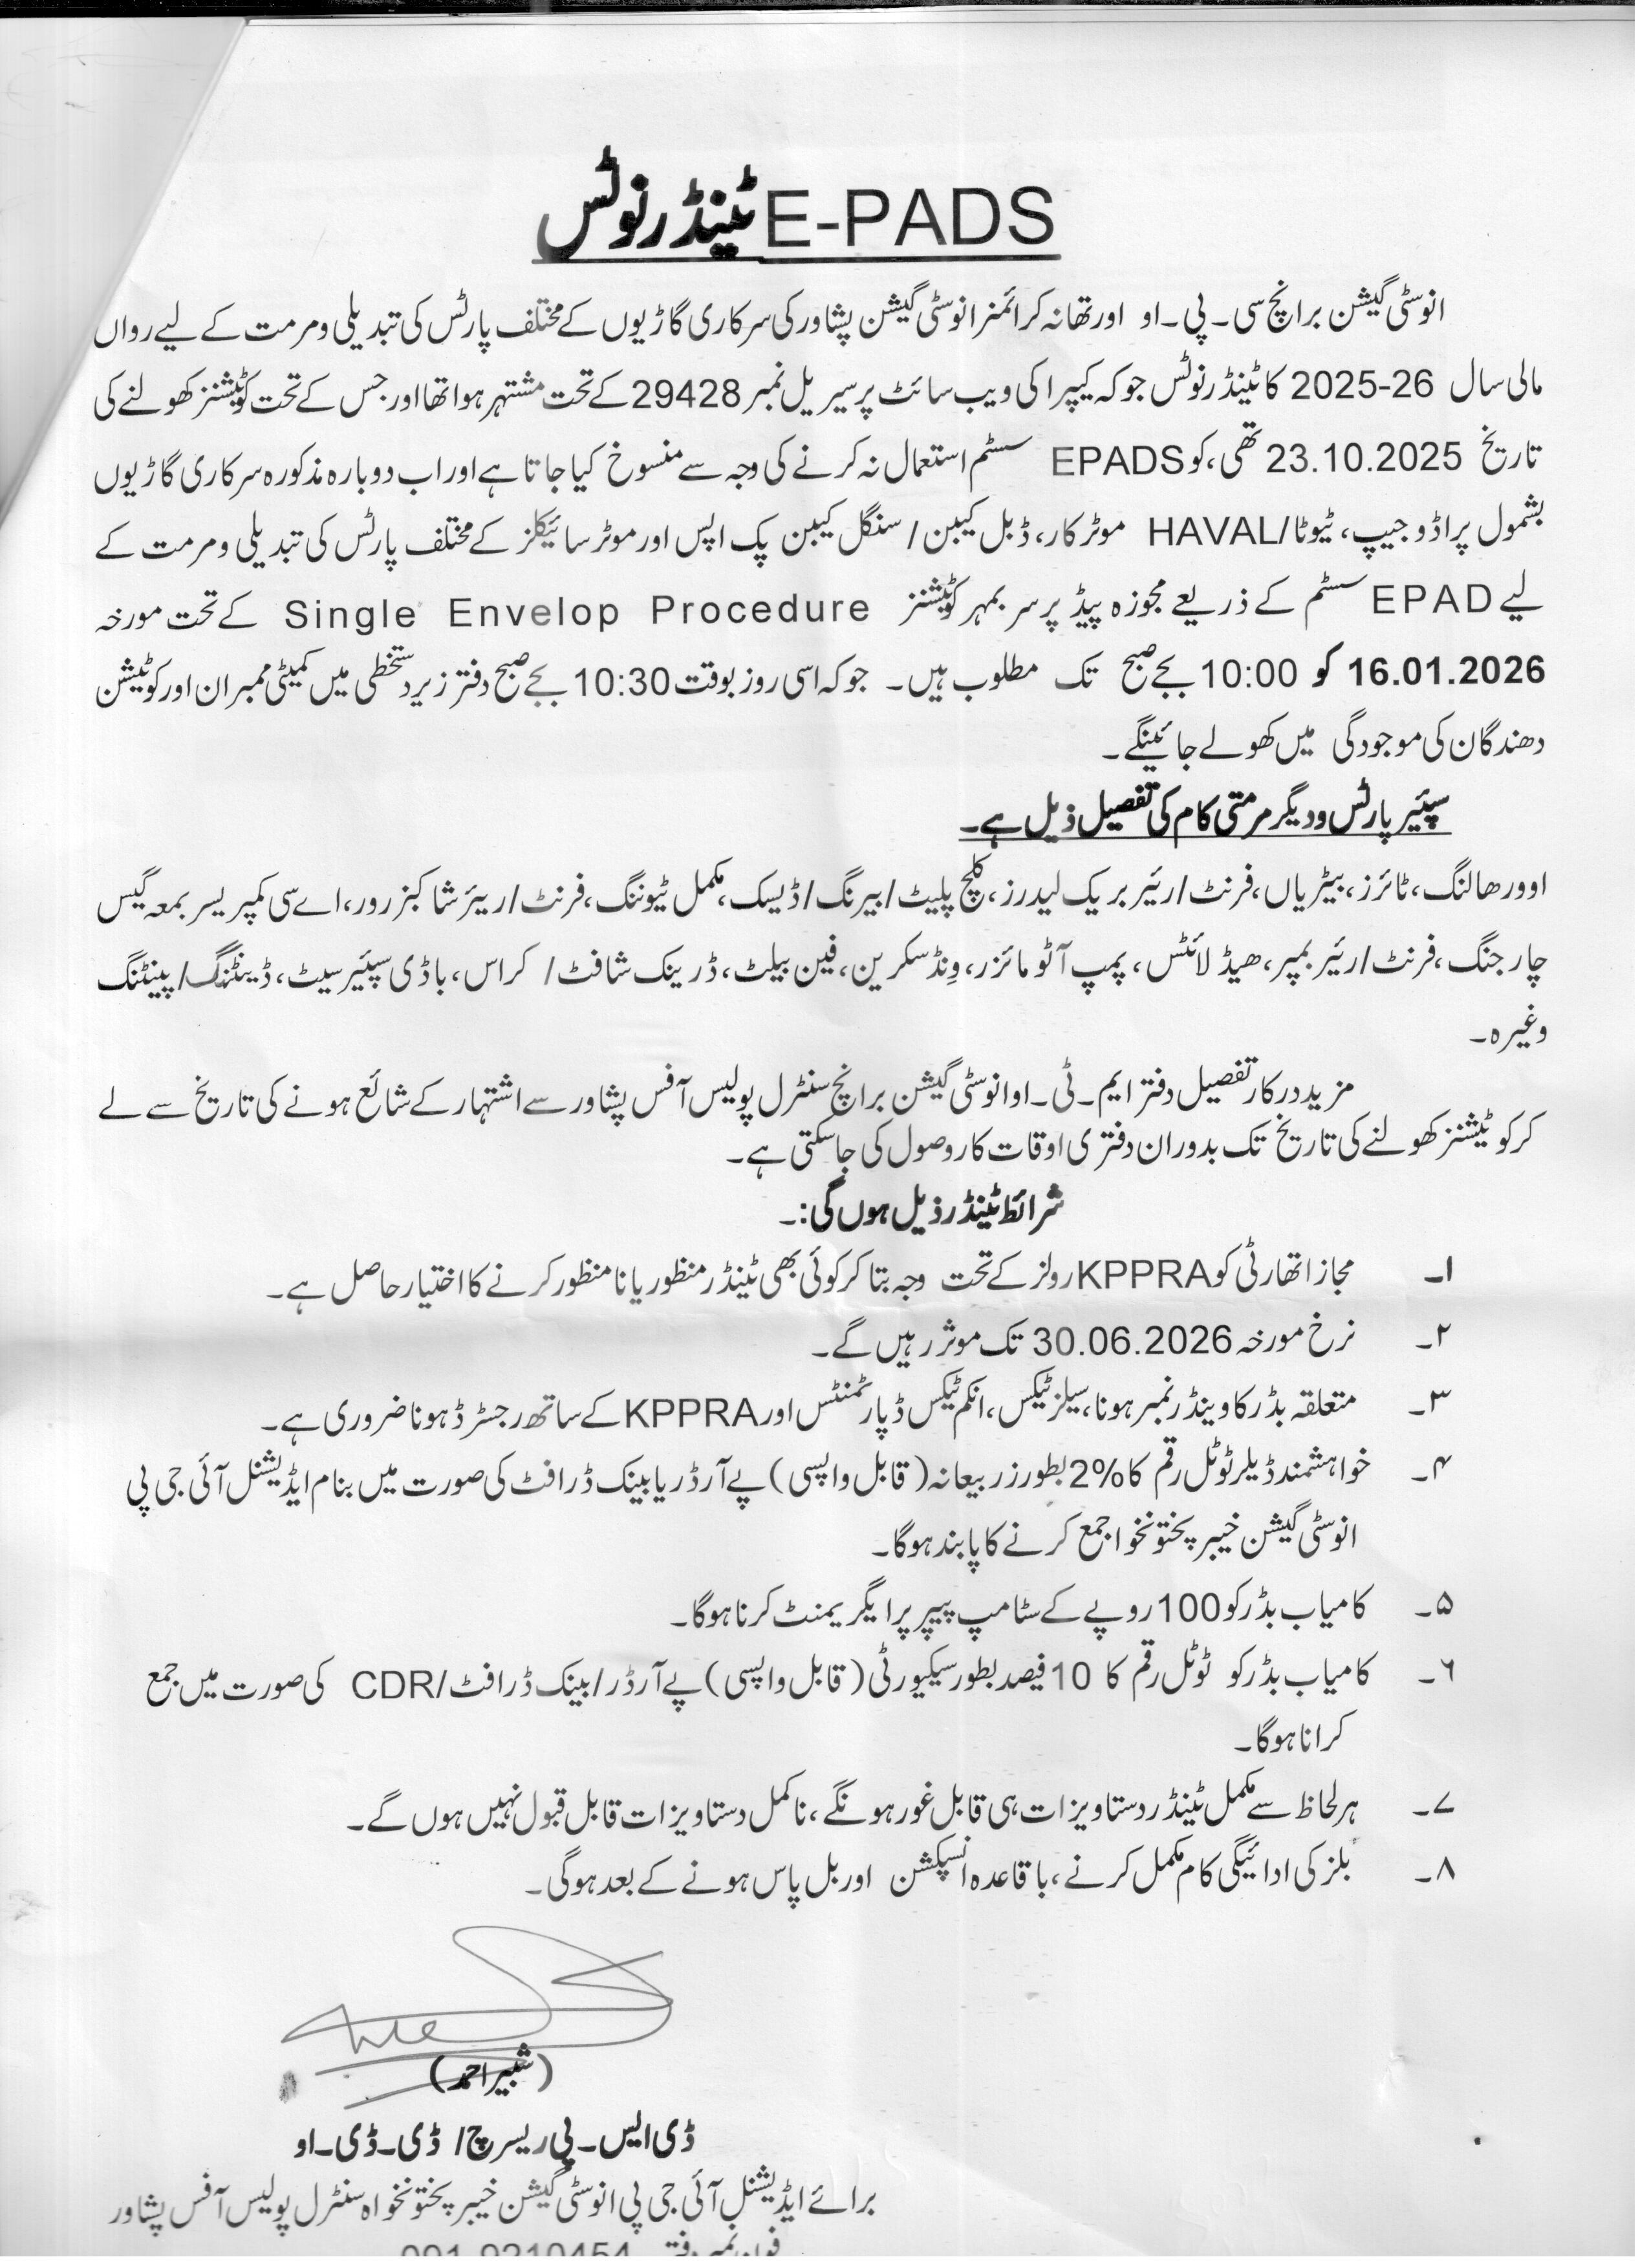 E-PADS ٹینڈر نوٹس
انوسٹی گیشن برانچ سی۔پی۔او اور تھانہ کرائمنر انوسٹی گیشن پشاور کی سرکاری گاڑیوں کے مختلف پارٹس کی تبدیلی و مرمت کے لیے رواں
مالی سال 2025-26 کا ٹینڈر نوٹس جو کہ کیپرا کی ویب سائٹ پر سیریل نمبر 29428 کے تحت مشتہر ہوا تھا اور جس کے تحت کوٹیشنز کھولنے کی
تاریخ 23.10.2025 تھی، کو EPADS سسٹم استعمال نہ کرنے کی وجہ سے منسوخ کیا جاتا ہے اور اب دوبارہ مذکورہ سرکاری گاڑیوں
بشمول پراڈو جیپ، ٹیوٹا/HAVAL موٹر کار، ڈبل کیبن/ سنگل کیبن پک اپس اور موٹر سائیکلز کے مختلف پارٹس کی تبدیلی و مرمت کے
لیے EPAD سسٹم کے ذریعے مجوزہ پیڈ پر سر بمہر کوٹیشنز Single Envelop Procedure کے تحت مورخہ
16.01.2026 کو 10:00 بجے صبح تک مطلوب ہیں۔ جو کہ اسی روز بوقت 10:30 بجے صبح دفتر زیر دستخطی میں کمیٹی ممبران اور کوٹیشن
دھندگان کی موجودگی میں کھولے جائینگے۔
سپئیر پارٹس و دیگر مرمتی کام کی تفصیل ذیل ہے۔
اوورھالنگ، ٹائرز، بیٹریاں، فرنٹ/رئیر بریک لیدرز، کلچ پلیٹ/بیرنگ/ڈیسک، مکمل ٹیوننگ، فرنٹ/رییر شاکبزرور، اے سی کمپریسر بمعہ گیس
چارجنگ، فرنٹ/رئیر بمپر، ھیڈ لائٹس، پمپ آٹومائزر، ونڈ سکرین، فین بیلٹ، ڈرینک شافٹ/ کراس، باڈی سپئیر سیٹ، ڈینٹنگ/پینٹنگ
وغیرہ۔
مزید درکار تفصیل دفتر ایم۔ٹی۔او انوسٹی گیشن برانچ سنٹرل پولیس آفس پشاور سے اشتہار کے شائع ہونے کی تاریخ سے لے
کر کوٹیشنز کھولنے کی تاریخ تک بدوران دفتری اوقات کار وصول کی جاسکتی ہے۔
شرائط ٹینڈر ذیل ہوں گی:۔
۱۔ مجاز اتھارٹی کو KPPRA رولز کے تحت وجہ بتا کر کوئی بھی ٹینڈر منظور یا نا منظور کرنے کا اختیار حاصل ہے۔
۲۔ نرخ مورخہ 30.06.2026 تک موثر رہیں گے۔
۳۔ متعلقہ بڈر کا وینڈر نمبر ہونا، سیلز ٹیکس، انکم ٹیکس ڈپارٹمنٹس اور KPPRA کے ساتھ رجسٹرڈ ہونا ضروری ہے۔
۴۔ خواہشمند ڈیلر ٹوٹل رقم کا 2% بطور زربیعانہ (قابل واپسی) پے آرڈر یا بینک ڈرافٹ کی صورت میں بنام ایڈیشنل آئی جی پی
انوسٹی گیشن خیبر پختونخوا جمع کرنے کا پابند ہوگا۔
۵۔ کامیاب بڈر کو 100 روپے کے سٹامپ پیپر پر ایگریمنٹ کرنا ہوگا۔
۶۔ کامیاب بڈر کو ٹوٹل رقم کا 10 فیصد بطور سیکیورٹی (قابل واپسی) پے آرڈر/بینک ڈرافٹ/CDR کی صورت میں جمع
کرانا ہوگا۔
۷۔ ہر لحاظ سے مکمل ٹینڈر دستاویزات ہی قابل غور ہونگے، نامکمل دستاویزات قابل قبول نہیں ہوں گے۔
۸۔ بلز کی ادائیگی کام مکمل کرنے، باقاعدہ انسپکشن اور بل پاس ہونے کے بعد ہوگی۔
(شبیر احمد)
ڈی ایس۔پی ریسرچ/ ڈی۔ڈی۔او
برائے ایڈیشنل آئی جی پی انوسٹی گیشن خیبر پختونخواہ سنٹرل پولیس آفس پشاور
فون نمبر دفتر 091-9210454